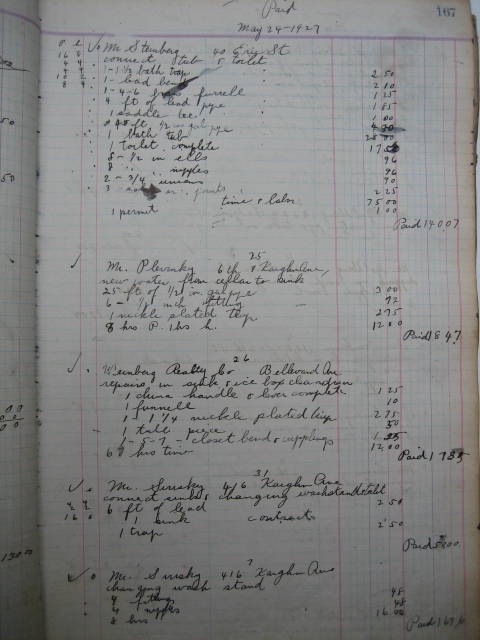 Paid 167
May 24-1927
Mr Steinberg 40 Erie St
connect tub & toilet
1-1 1/2 bath trap 2 50
1- lead bend 2 10
1-4-6 ferrell 1 25
4 ft of lead pipe 1 85
1 saddle tee 1 00
48 ft 1/2 in gal pipe
1 bath tub 28 00
1 toilet complete 17 50
8-1/2 in ells 96
8 " nipples 96
2-3/4 unions 70
3 joints 2 25
time & labor 75 00
1 permit 1 00
Paid 140 07
25
Mr. Plevinsky 6th & Kaighn Ave,
new water from cellar to sink
25 ft of 1/2 in. gal pipe 3 00
6-1/2 inch fitting 72
1 nickle plated trap 2 75
8 hrs P. 1 hrs h. 12 00
Paid 18 47
26
Weinberg Realty Co Bellevard Ave
repairs in sink & ice box chardrun
1 china handle & lever complete 1 25
1 funnell 10
1-1 1/4 nickle plated trap 2 75
1 tail piece 50
1-5-7- closet bend & cupplings 1 25
6 hrs time 12 00
Paid 17 85
31
Mr. Sinsky 416 Kaighn Ave
connect sink & changing washstand & toilet
6 ft of lead 2 50
1 sink contract
1 trap 2 50
Paid
7
Mr. Sinsky 416 Kaighn Ave
changing wash stand
4 fittings 48
4 nipples 48
8 hrs 16 00
Paid 16